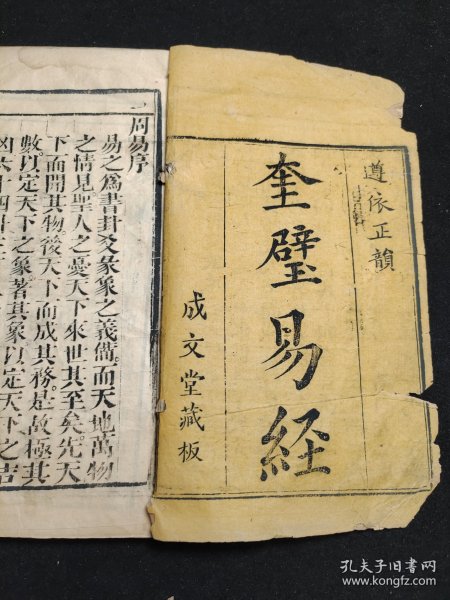 遵依正韻
奎璧易經
成文堂藏板
周易序
易之為書卦爻彖象之義備而天地萬物
之情見聖人之憂天下來世其至矣先天
下而開其物後天下而成其務是故極其
數以定天下之象著其象以定天下之吉
凶六十四卦三
孔夫子旧书网
www.kongfz.com